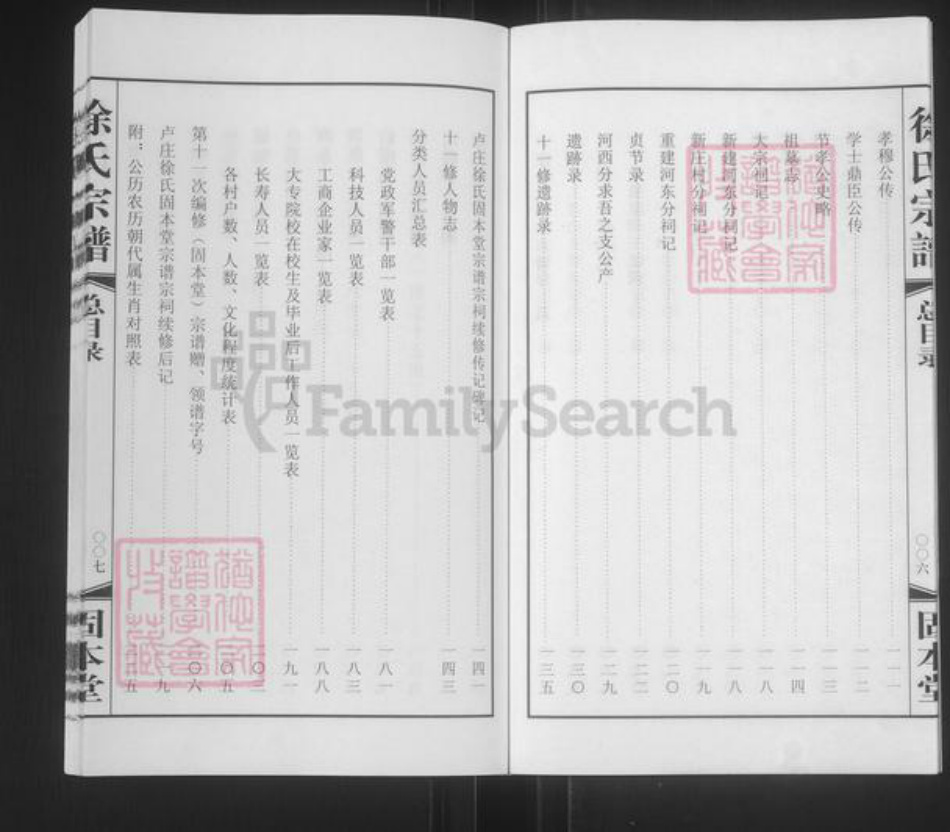 徐氏宗譜
总目录
〇〇六
固本堂
孝穆公传 一一一
学士鼎臣公传 一一二
节孝公史略 一一三
祖墓志 一一四
大宗祠记 一一八
新建河东分祠记 一一八
新庄村分祠记 一一九
重建河东分祠记 一二〇
贞节录 一二二
河西分求吾之支公产 一二九
遗跡录 一三〇
十一修遗跡录 一三五
卢庄徐氏固本堂宗谱宗祠续修传记碑记 一四一
十一修人物志 一四三
分类人员汇总表
党政军警干部一览表 一八一
科技人员一览表 一八三
工商企业家一览表 一八八
大专院校在校生及毕业后工作人员一览表 一九一
长寿人员一览表
各村户数、人数、文化程度统计表
第十一次编修（固本堂）宗谱赠、领谱字号
卢庄徐氏固本堂宗谱宗祠续修后记
附：公历农历朝代属生肖对照表
徐氏宗譜
总目录
〇〇七
固本堂
FamilySearch